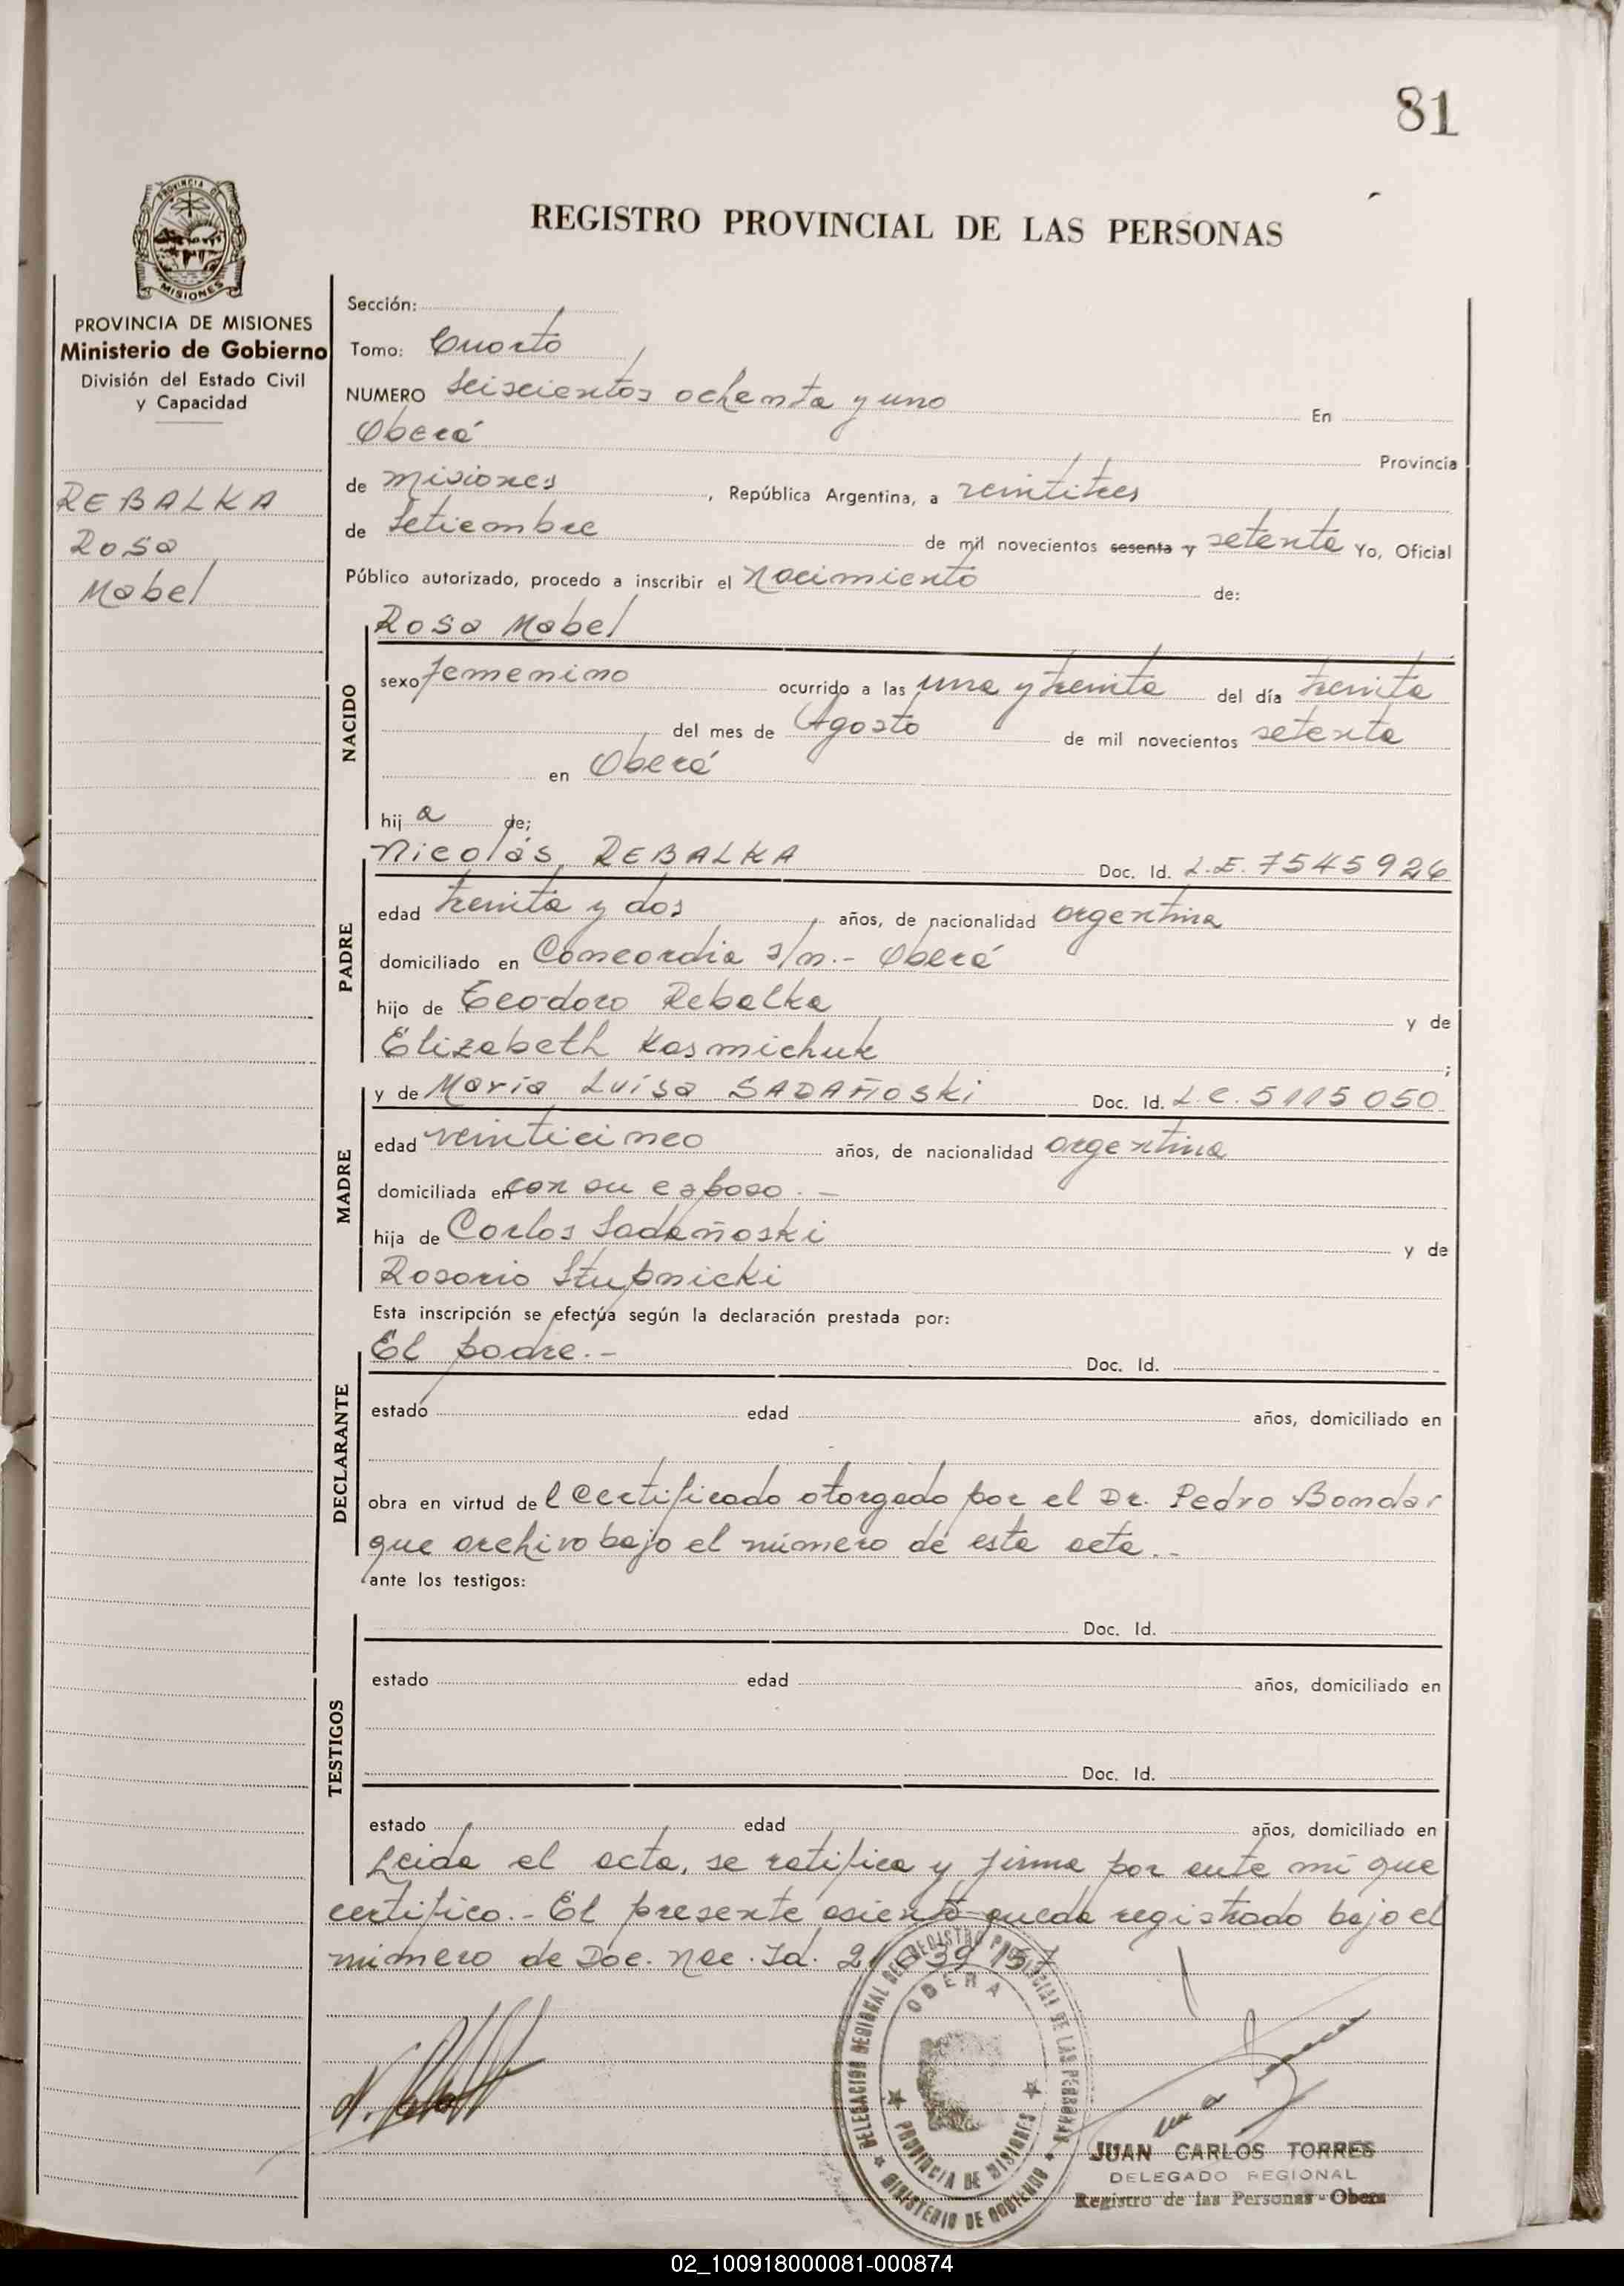 81
PROVINCIA DE
MISIONES
REGISTRO PROVINCIAL DE LAS PERSONAS
PROVINCIA DE MISIONES
Ministerio de Gobierno
División del Estado Civil
y Capacidad
REBALKA
Rosa
Mabel
Sección:
Tomo: Cuarto
NUMERO Seiscientos ochenta y uno En
Oberá Provincia
de Misiones, República Argentina, a veintitres
de Setiembre de mil novecientos sesenta y setenta Yo, Oficial
Público autorizado, procedo a inscribir el Nacimiento de:
NACIDO
Rosa Mabel
sexo femenino ocurrido a las una y treinta del día treinta
del mes de Agosto de mil novecientos setenta
en Oberá
hij a de;
PADRE
Nicolás REBALKA Doc. Id. L.E. 7545926
edad treinta y dos años, de nacionalidad argentina
domiciliado en Concordia s/n.- Oberá
hijo de Teodoro Rebalka y de
Elizabeth Kosmichuk ;
MADRE
y de María Luisa SADAÑOSKI Doc. Id. L.C. 5115050
edad veinticinco años, de nacionalidad argentina
domiciliada en con su esposo.-
hija de Carlos Sadañoski y de
Rosario Stupnicki
Esta inscripción se efectúa según la declaración prestada por:
DECLARANTE
El padre.- Doc. Id.
estado edad años, domiciliado en
obra en virtud de l certificado otorgado por el Dr. Pedro Bondar
que archivo bajo el número de esta acta.-
ante los testigos:
TESTIGOS
Doc. Id.
estado edad años, domiciliado en
Doc. Id.
estado edad años, domiciliado en
Leida el acta, se ratifica y firma por ante mi que
certifico.- El presente asiento queda registrado bajo el
número de Doc. Nac. Id. 21639157
DELEGACION REGIONAL DEL REGISTRO PROVINCIAL DE LAS PERSONAS
OBERA
PROVINCIA DE MISIONES
MINISTERIO DE GOBIERNO
JUAN CARLOS TORRES
DELEGADO REGIONAL
Registro de las Personas - Obera
02_100918000081-000874